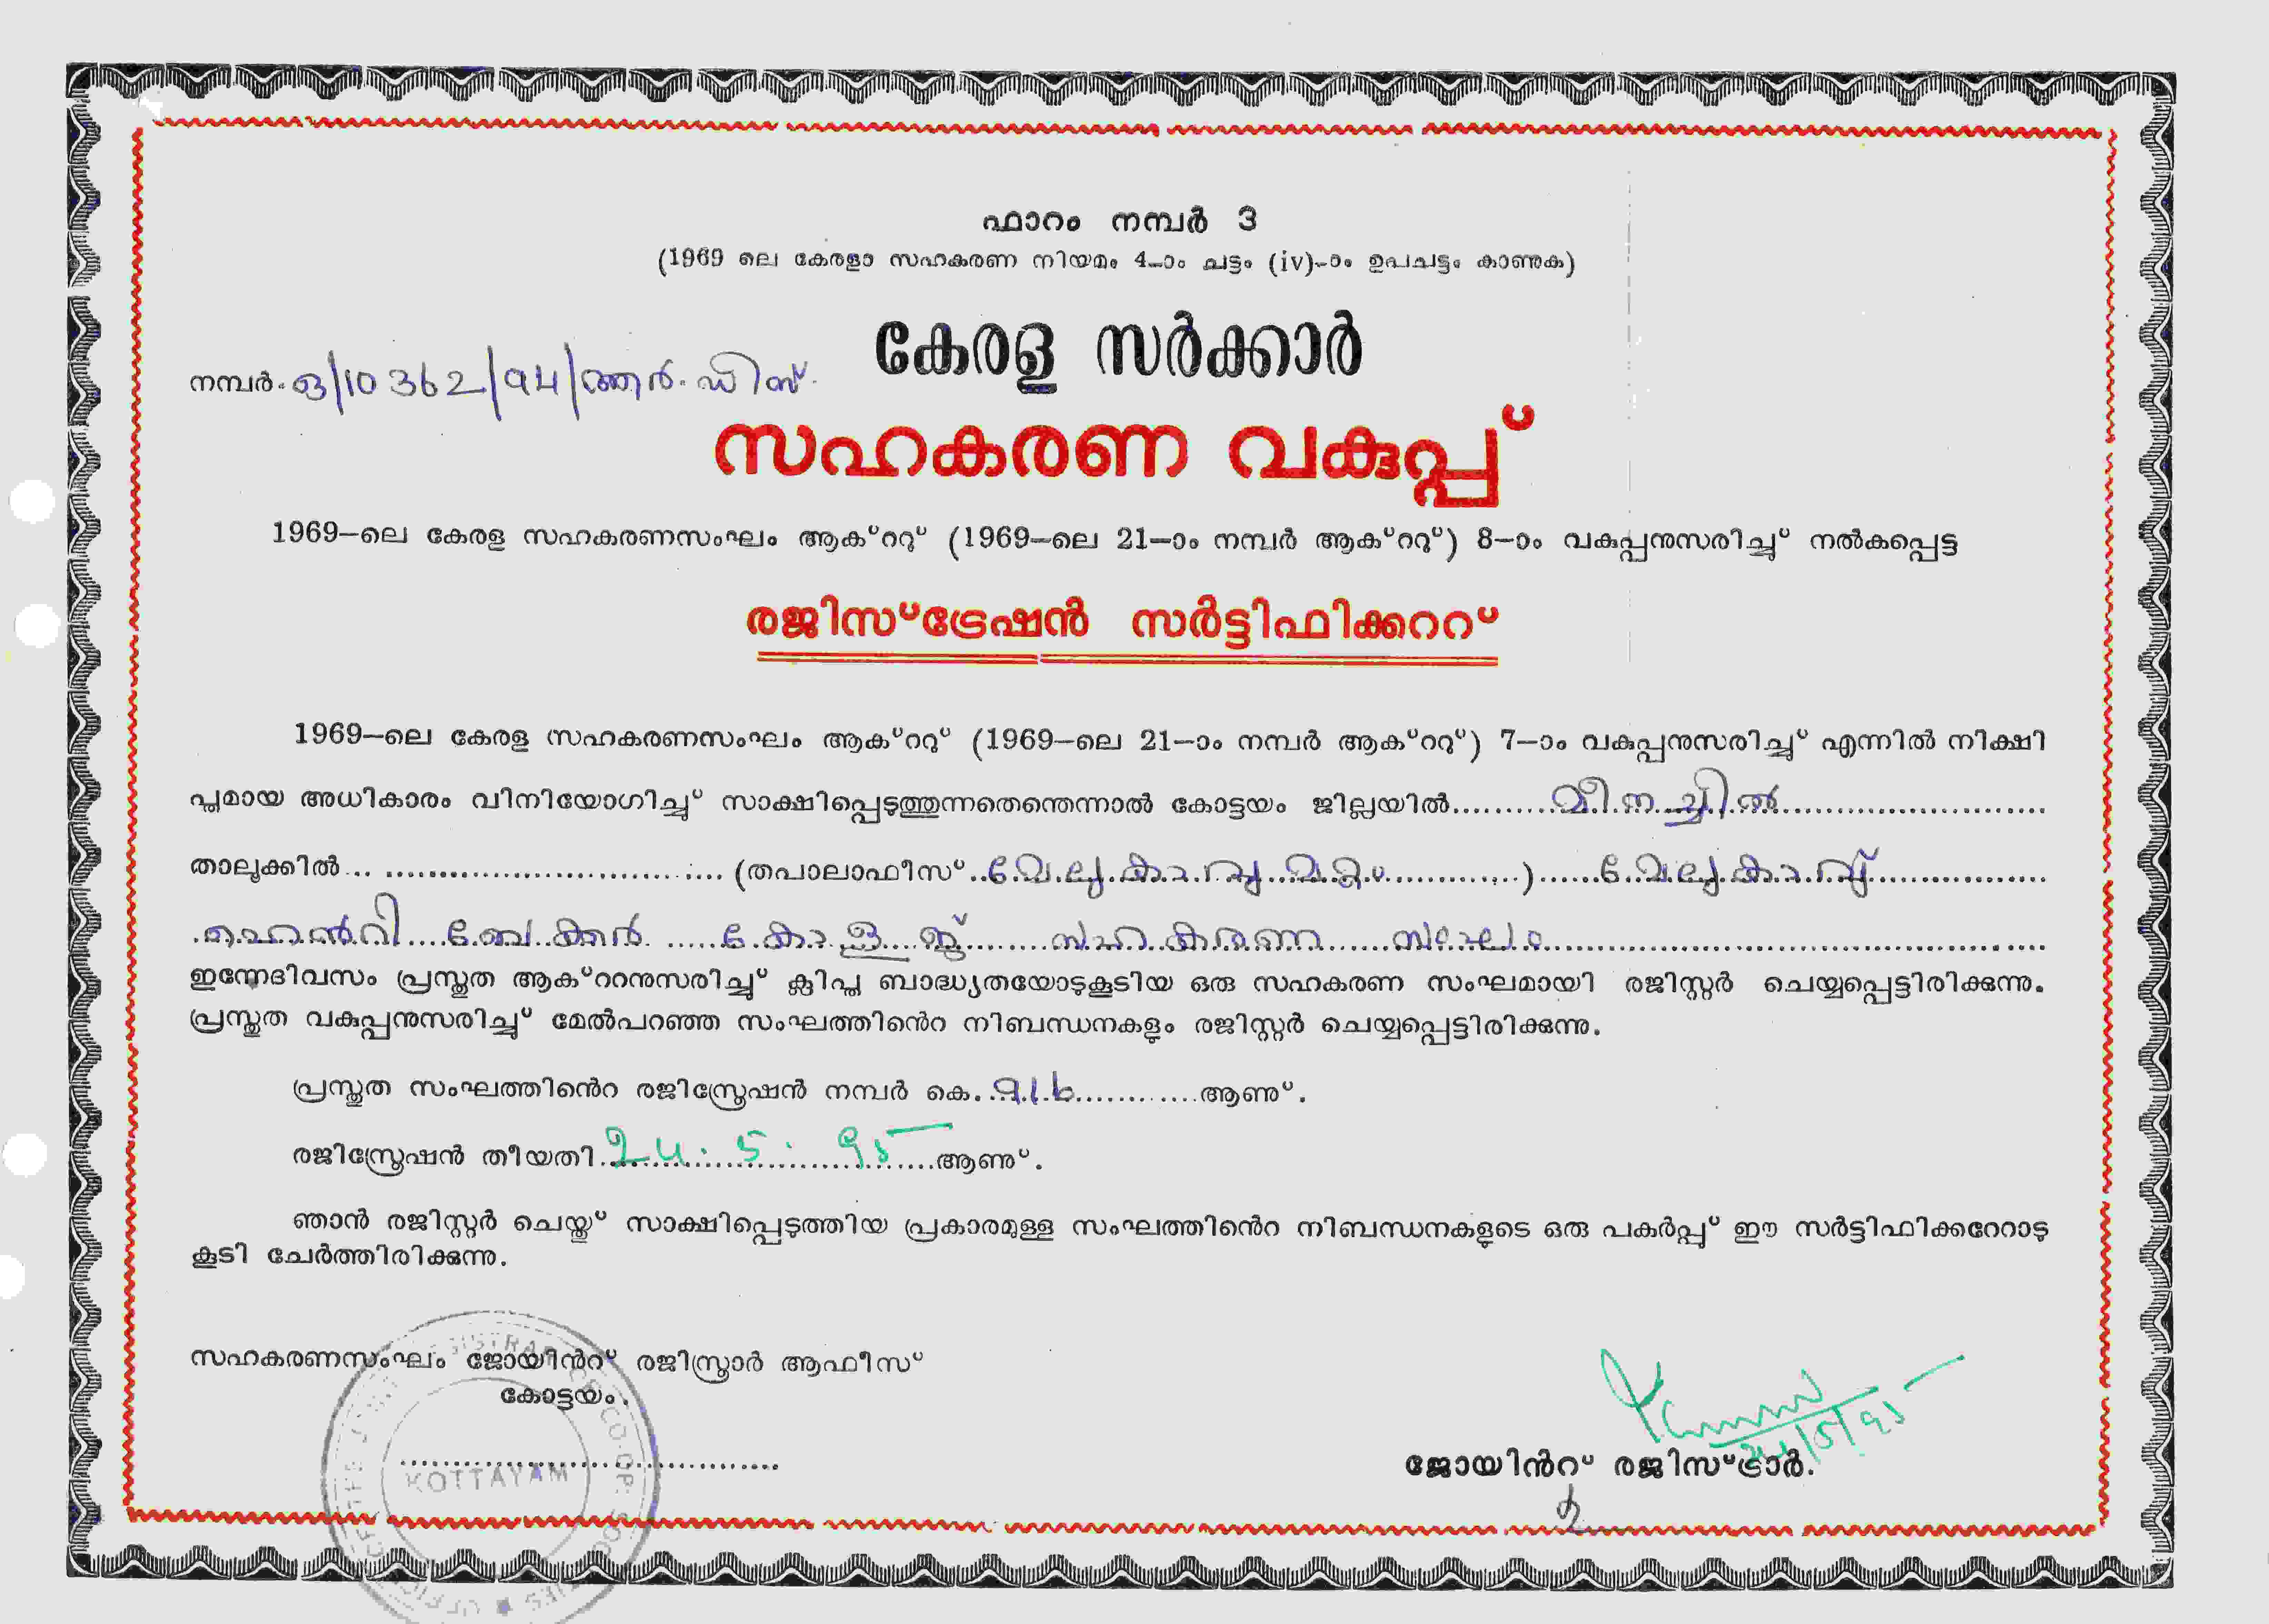 ഫാറം നമ്പർ 3
(1969 ലെ കേരളാ സഹകരണ നിയമം 4-ാം ചട്ടം (iv)-ാം ഉപചട്ടം കാണുക)
കേരള സർക്കാർ
നമ്പർ. ഒ/10362/94/ആർ.ഡിസ്.
സഹകരണ വകുപ്പ്
1969-ലെ കേരള സഹകരണസംഘം ആക്ററ് (1969-ലെ 21-ാം നമ്പർ ആക്ററ്) 8-ാം വകുപ്പനുസരിച്ച് നൽകപ്പെട്ട
രജിസ്ട്രേഷൻ സർട്ടിഫിക്കററ്
1969-ലെ കേരള സഹകരണസംഘം ആക്ററ് (1969-ലെ 21-ാം നമ്പർ ആക്ററ്) 7-ാം വകുപ്പനുസരിച്ച് എന്നിൽ നിക്ഷി
പ്തമായ അധികാരം വിനിയോഗിച്ച് സാക്ഷിപ്പെടുത്തുന്നതെന്തെന്നാൽ കോട്ടയം ജില്ലയിൽ മീനച്ചിൽ
താലൂക്കിൽ (തപാലാഫീസ് മേലുകാവുമറ്റം) മേലുകാവ്
ഹെൻറി ബേക്കർ കോളജ് സഹകരണ സംഘം
ഇന്നേദിവസം പ്രസ്തുത ആക്ററനുസരിച്ച് ക്ലിപ്ത ബാദ്ധ്യതയോടുകൂടിയ ഒരു സഹകരണ സംഘമായി രജിസ്റ്റർ ചെയ്യപ്പെട്ടിരിക്കുന്നു.
പ്രസ്തുത വകുപ്പനുസരിച്ച് മേൽപറഞ്ഞ സംഘത്തിൻെറ നിബന്ധനകളും രജിസ്റ്റർ ചെയ്യപ്പെട്ടിരിക്കുന്നു.
പ്രസ്തുത സംഘത്തിൻെറ രജിസ്ട്രേഷൻ നമ്പർ കെ. 916 ആണ്.
രജിസ്ട്രേഷൻ തീയതി 24.5.95 ആണ്.
ഞാൻ രജിസ്റ്റർ ചെയ്തു് സാക്ഷിപ്പെടുത്തിയ പ്രകാരമുള്ള സംഘത്തിൻെറ നിബന്ധനകളുടെ ഒരു പകർപ്പ് ഈ സർട്ടിഫിക്കറേറാടു
കൂടി ചേർത്തിരിക്കുന്നു.
സഹകരണസംഘം ജോയിൻറ് രജിസ്ട്രാർ ആഫീസ്
കോട്ടയം.
KOTTAYAM
24/5/95
ജോയിൻറ് രജിസ്ട്രാർ.